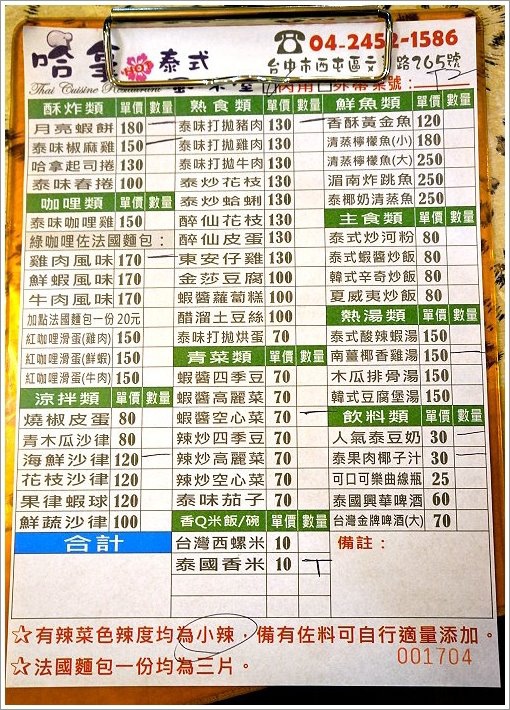 哈拿 HOT 泰式
Thai Cuisine Restaurant
☎04-2452-1586
台中市西屯區文 路765號
內用 外帶 桌號：
酥炸類 單價 數量
月亮蝦餅 180
泰味椒麻雞 150
哈拿起司捲 130
泰味春捲 100
咖哩類 單價 數量
泰味咖哩雞 150
綠咖哩佐法國麵包：
雞肉風味 170
鮮蝦風味 170
牛肉風味 170
加點法國麵包一份 20元
紅咖哩滑蛋(雞肉) 150
紅咖哩滑蛋(鮮蝦) 150
紅咖哩滑蛋(牛肉) 150
涼拌類 單價 數量
燒椒皮蛋 80
青木瓜沙律 80
海鮮沙律 120
花枝沙律 120
果律蝦球 120
鮮蔬沙律 100
合計
熱食類 單價 數量
泰味打拋豬肉 130
泰味打拋雞肉 130
泰味打拋牛肉 130
泰炒花枝 130
泰炒蛤蜊 130
醉仙花枝 130
醉仙皮蛋 130
東安仔雞 130
金莎豆腐 100
蝦醬蘿蔔糕 100
醋溜土豆絲 100
泰味打拋烘蛋 70
青菜類 單價 數量
蝦醬四季豆 70
蝦醬高麗菜 70
蝦醬空心菜 70
辣炒四季豆 70
辣炒高麗菜 70
辣炒空心菜 70
泰味茄子 70
香Q米飯/碗 單價 數量
台灣西螺米 10
泰國香米 10
鮮魚類 單價 數量
香酥黃金魚 120
清蒸檸檬魚(小) 180
清蒸檸檬魚(大) 250
湄南炸跳魚 250
泰椰奶清蒸魚 250
主食類 單價 數量
泰式炒河粉 80
泰式蝦醬炒飯 80
韓式辛奇炒飯 80
夏威夷炒飯 80
熱湯類 單價 數量
泰式酸辣蝦湯 150
南薑椰香雞湯 150
木瓜排骨湯 150
韓式豆腐煲湯 150
飲料類 單價 數量
人氣泰豆奶 30
泰果肉椰子汁 30
可口可樂曲線瓶 25
泰國興華啤酒 60
台灣金牌啤酒(大) 70
備註：
☆有辣菜色辣度均為小辣，備有佐料可自行適量添加。
☆法國麵包一份均為三片。
001704